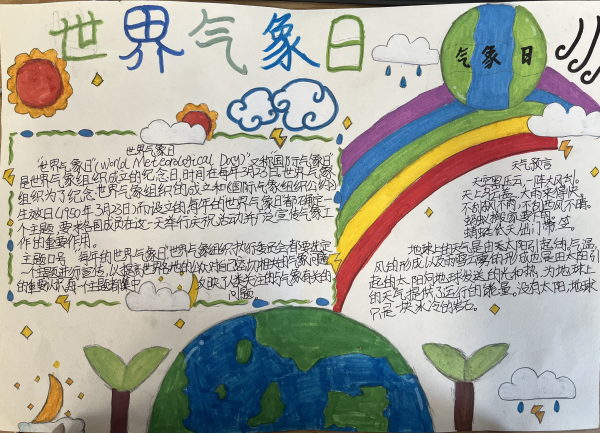 世界气象日
气象日
世界气象日
"世界气象日"(World Meteorological Day)"又称"国际气象日"
是世界气象组织成立的纪念日,时间在每年3月23日.世界气象
组织为了纪念世界气象组织的成立和《国际气象组织公约》
生效日(1950年3月23日)而设立的,每年的世界气象日都确定一
个主题,要求各国成员在这一天举行庆祝活动,并广泛宣传气象工
作的重要作用。
主题口号 每年的世界气象日"世界气象组织"执行委员会都要选定
一个主题进行宣传,以提高世界各地的公众对自己密切相关的气象问题
的重要性认识,每一个主题都集中 反映了人类关注的气象有关的
问题
天气预言
天空黑压云,一阵大风刮。
地球上的天气是由太阳引起的,气温,
风的形成以及雨雪的形成也是由太阳引
起的太阳向地球发送的光和热,为地球上
的天气提供了运行的能量。没有太阳,地球
只是一块冰冷的岩石。